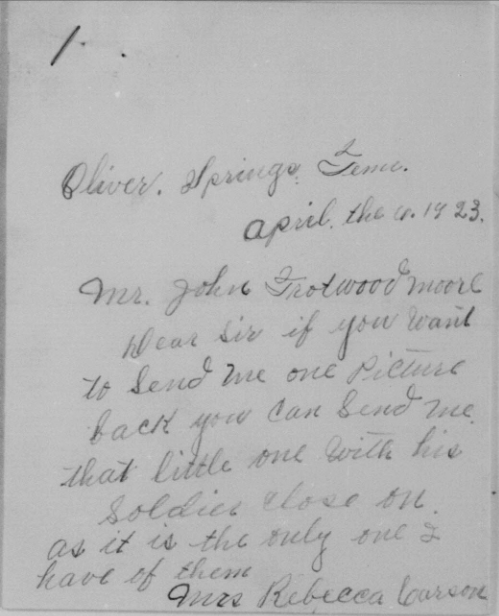 1.
Oliver. Springs. Tenn.
April. the 10. 1923.
Mr. John Trotwood Moore
Dear Sir if you want
to Send me one Picture
back you can Send me
that little one with his
Soldier close on.
as it is the only one I
have of them
Mrs Rebecca Carson